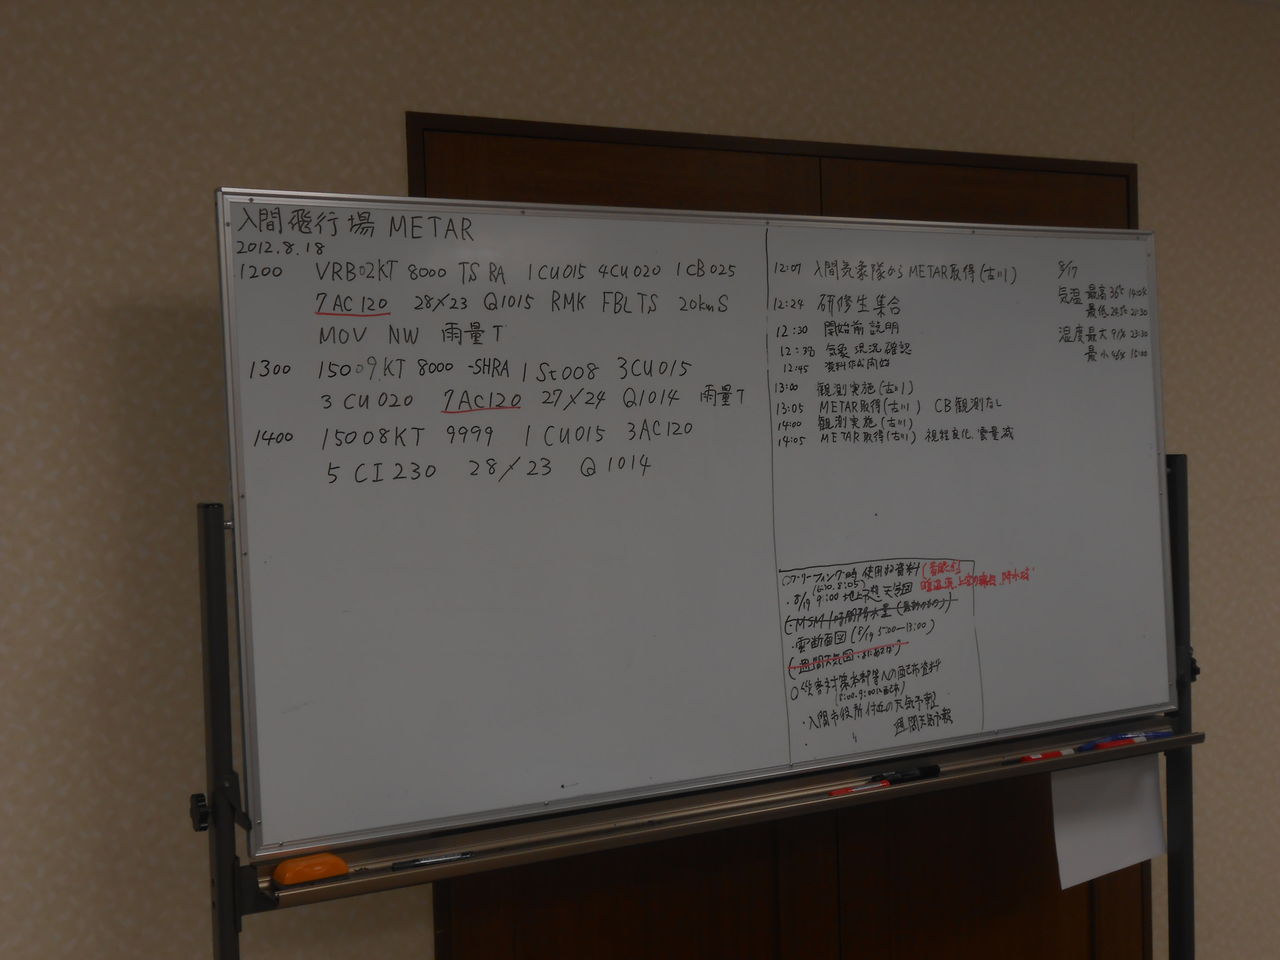 入間飛行場 METAR
2012.8.18
1200 VRB02KT 8000 TS RA 1CU015 4CU020 1CB025
7AC120 28/23 Q1015 RMK FBL TS 20km S
MOV NW 雨量T
1300 15009KT 8000 -SHRA 1St008 3CU015
3CU020 7AC120 27/24 Q1014 雨量T
1400 15008KT 9999 1CU015 3AC120
5CI230 28/23 Q1014
12:07 入間気象隊からMETAR取得(古川)
12:24 研修生集合
12:30 開始前説明
12:38 気象現況確認
12:45 資料作成開始
13:00 観測実施(古川)
13:05 METAR取得(古川) CB観測なし
14:00 観測実施(古川)
14:05 METAR取得(古川) 視程良化、雲量減
8/17
気温 最高 36℃
最低 24.5℃
湿度 最大 91% 23:30
最小 15:00
○ブリーフィング時使用する資料
・8/19 9:00 地上予想天気図
・MSM1時間降水量
・雲断面図(8/19 5:00-13:00)
週間天気図
○災害対策本部等への配布資料
・入間市役所付近の天気予報
週間天気予報